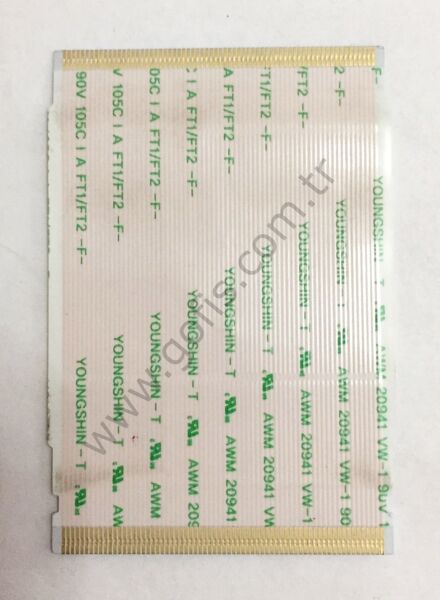 90V 105C I A FT1/FT2 -F-
YOUNGSHIN-T
V 105C I A FT1/FT2 -F-
YOUNGSHIN-T AW
05C I A FT1/FT2 -F-
YOUNGSHIN-T AWM
C I A FT1/FT2 -F-
YOUNGSHIN-T AWM 209
A FT1/FT2 -F-
YOUNGSHIN-T AWM 20941
FT1/FT2 -F-
YOUNGSHIN-T AWM 20941 VW
FT2 -F-
YOUNGSHIN-T AWM 20941 VW-1
2 -F-
YOUNGSHIN-T AWM 20941 VW-1 90
F-
YOUNGSHIN-T AWM 20941 VW-1 90V 1
www.gofis.com.tr